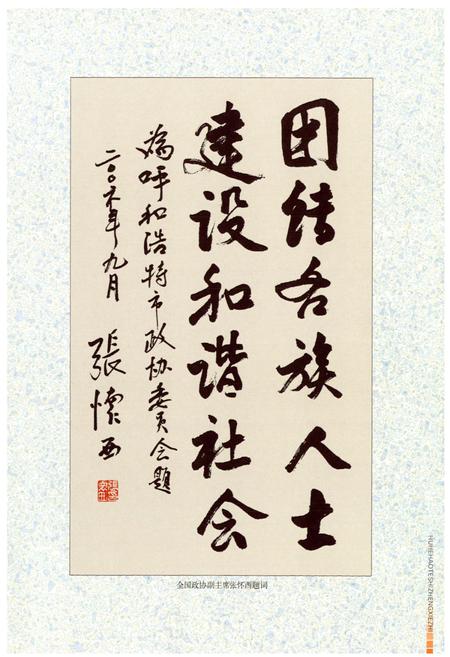 团结各族人士
建设和谐社会
为呼和浩特市政协委员会题
二〇〇六年九月
張懷西
全国政协副主席张怀西题词
HUHEHAOTESHIZHENGXIEZHI